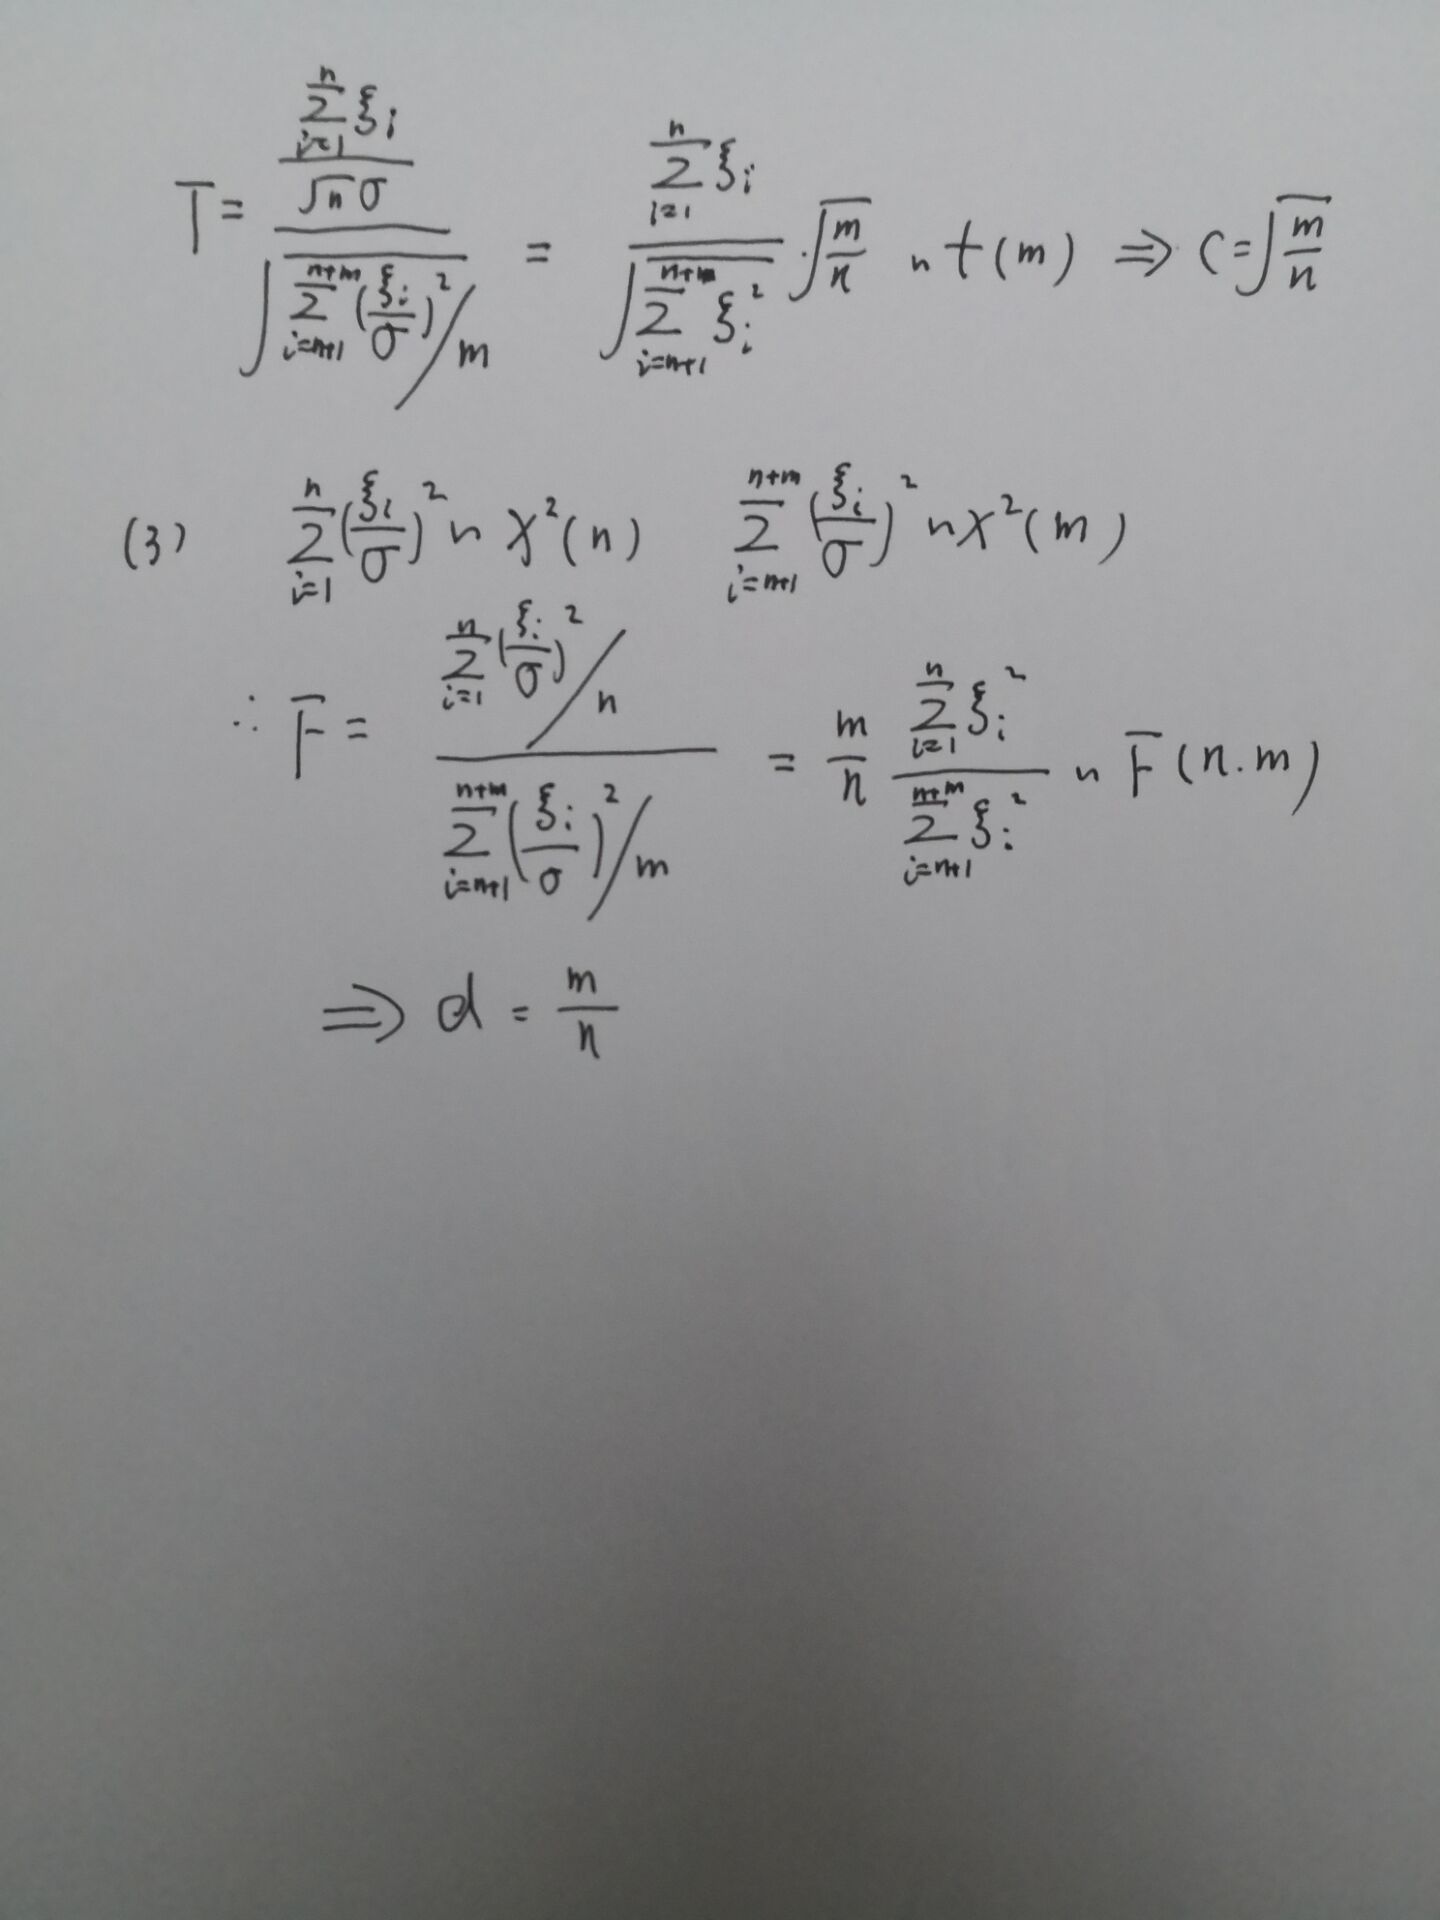 $T = \frac{\frac{\sum_{i=1}^{n} \xi_i}{\sqrt{n}\sigma}}{\sqrt{\sum_{i=n+1}^{n+m} (\frac{\xi_i}{\sigma})^2 / m}} = \frac{\sum_{i=1}^{n} \xi_i}{\sqrt{\sum_{i=n+1}^{n+m} \xi_i^2}} \cdot \sqrt{\frac{m}{n}} \sim t(m) \Rightarrow C = \sqrt{\frac{m}{n}}$
(3) $\sum_{i=1}^{n} (\frac{\xi_i}{\sigma})^2 \sim \chi^2(n) \quad \sum_{i=n+1}^{n+m} (\frac{\xi_i}{\sigma})^2 \sim \chi^2(m)$
$\therefore F = \frac{\sum_{i=1}^{n} (\frac{\xi_i}{\sigma})^2 / n}{\sum_{i=n+1}^{n+m} (\frac{\xi_i}{\sigma})^2 / m} = \frac{m}{n} \frac{\sum_{i=1}^{n} \xi_i^2}{\sum_{i=n+1}^{n+m} \xi_i^2} \sim F(n.m)$
$\Rightarrow d = \frac{m}{n}$